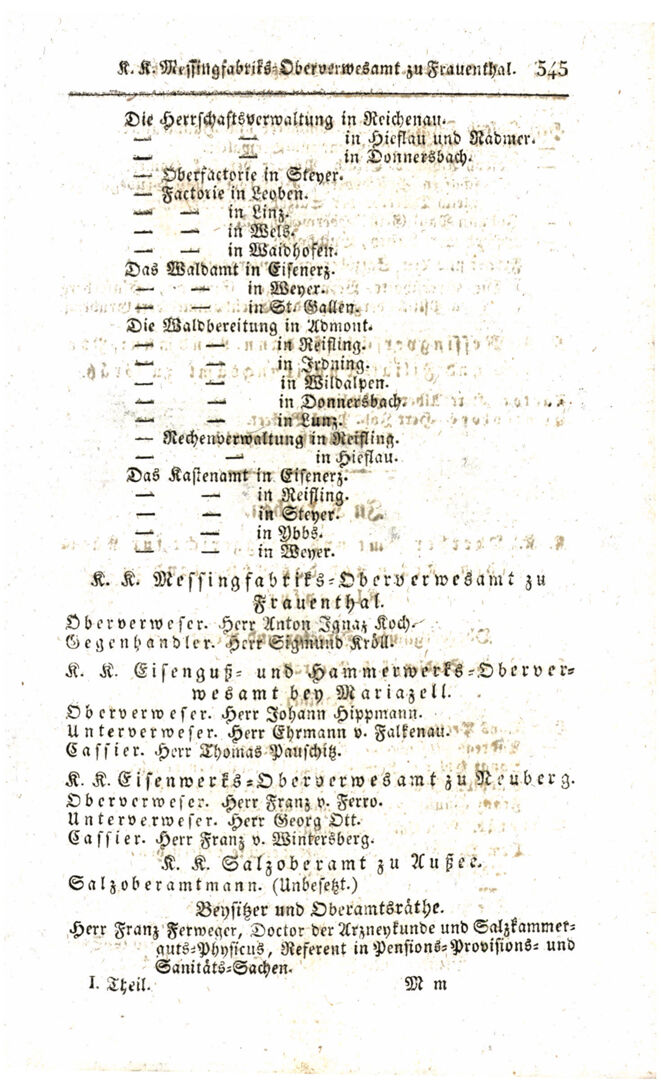 K. K. Messingfabriks-Oberverwesamt zu Frauenthal. 545
Die Herrschaftsverwaltung in Reichenau.
— — in Hieflau und Radmer.
— — in Donnersbach.
— Oberfactorie in Steyer.
— Factorie in Leoben.
— — in Linz.
— — in Wels.
— — in Waidhofen.
Das Waldamt in Eisenerz.
— — in Weyer.
— — in St. Gallen.
Die Waldbereitung in Admont.
— — in Reifling.
— — in Irdning.
— — in Wildalpen.
— — in Donnersbach.
— — in Lunz.
— Rechenverwaltung in Reifling.
— — in Hieflau.
Das Kastenamt in Eisenerz.
— — in Reifling.
— — in Steyer.
— — in Ybbs.
— — in Weyer.
K. K. Messingfabriks-Oberverwesamt zu
Frauenthal.
Oberverweser. Herr Anton Ignaz Koch.
Gegenhandler. Herr Sigmund Kröll.
K. K. Eisenguß- und Hammerwerks-Oberver-
wesamt bey Mariazell.
Oberverweser. Herr Johann Hippmann.
Unterverweser. Herr Ehrmann v. Falkenau.
Cassier. Herr Thomas Pauschitz.
K. K. Eisenwerks-Oberverwesamt zu Neuberg.
Oberverweser. Herr Franz v. Ferro.
Unterverweser. Herr Georg Ott.
Cassier. Herr Franz v. Wintersberg.
K. K. Salzoberamt zu Außee.
Salzoberamtmann. (Unbesetzt.)
Beysitzer und Oberamtsräthe.
Herr Franz Ferweger, Doctor der Arzneykunde und Salzkammer-
guts-Physicus, Referent in Pensions-Provisions- und
Sanitäts-Sachen.
I. Theil. M m